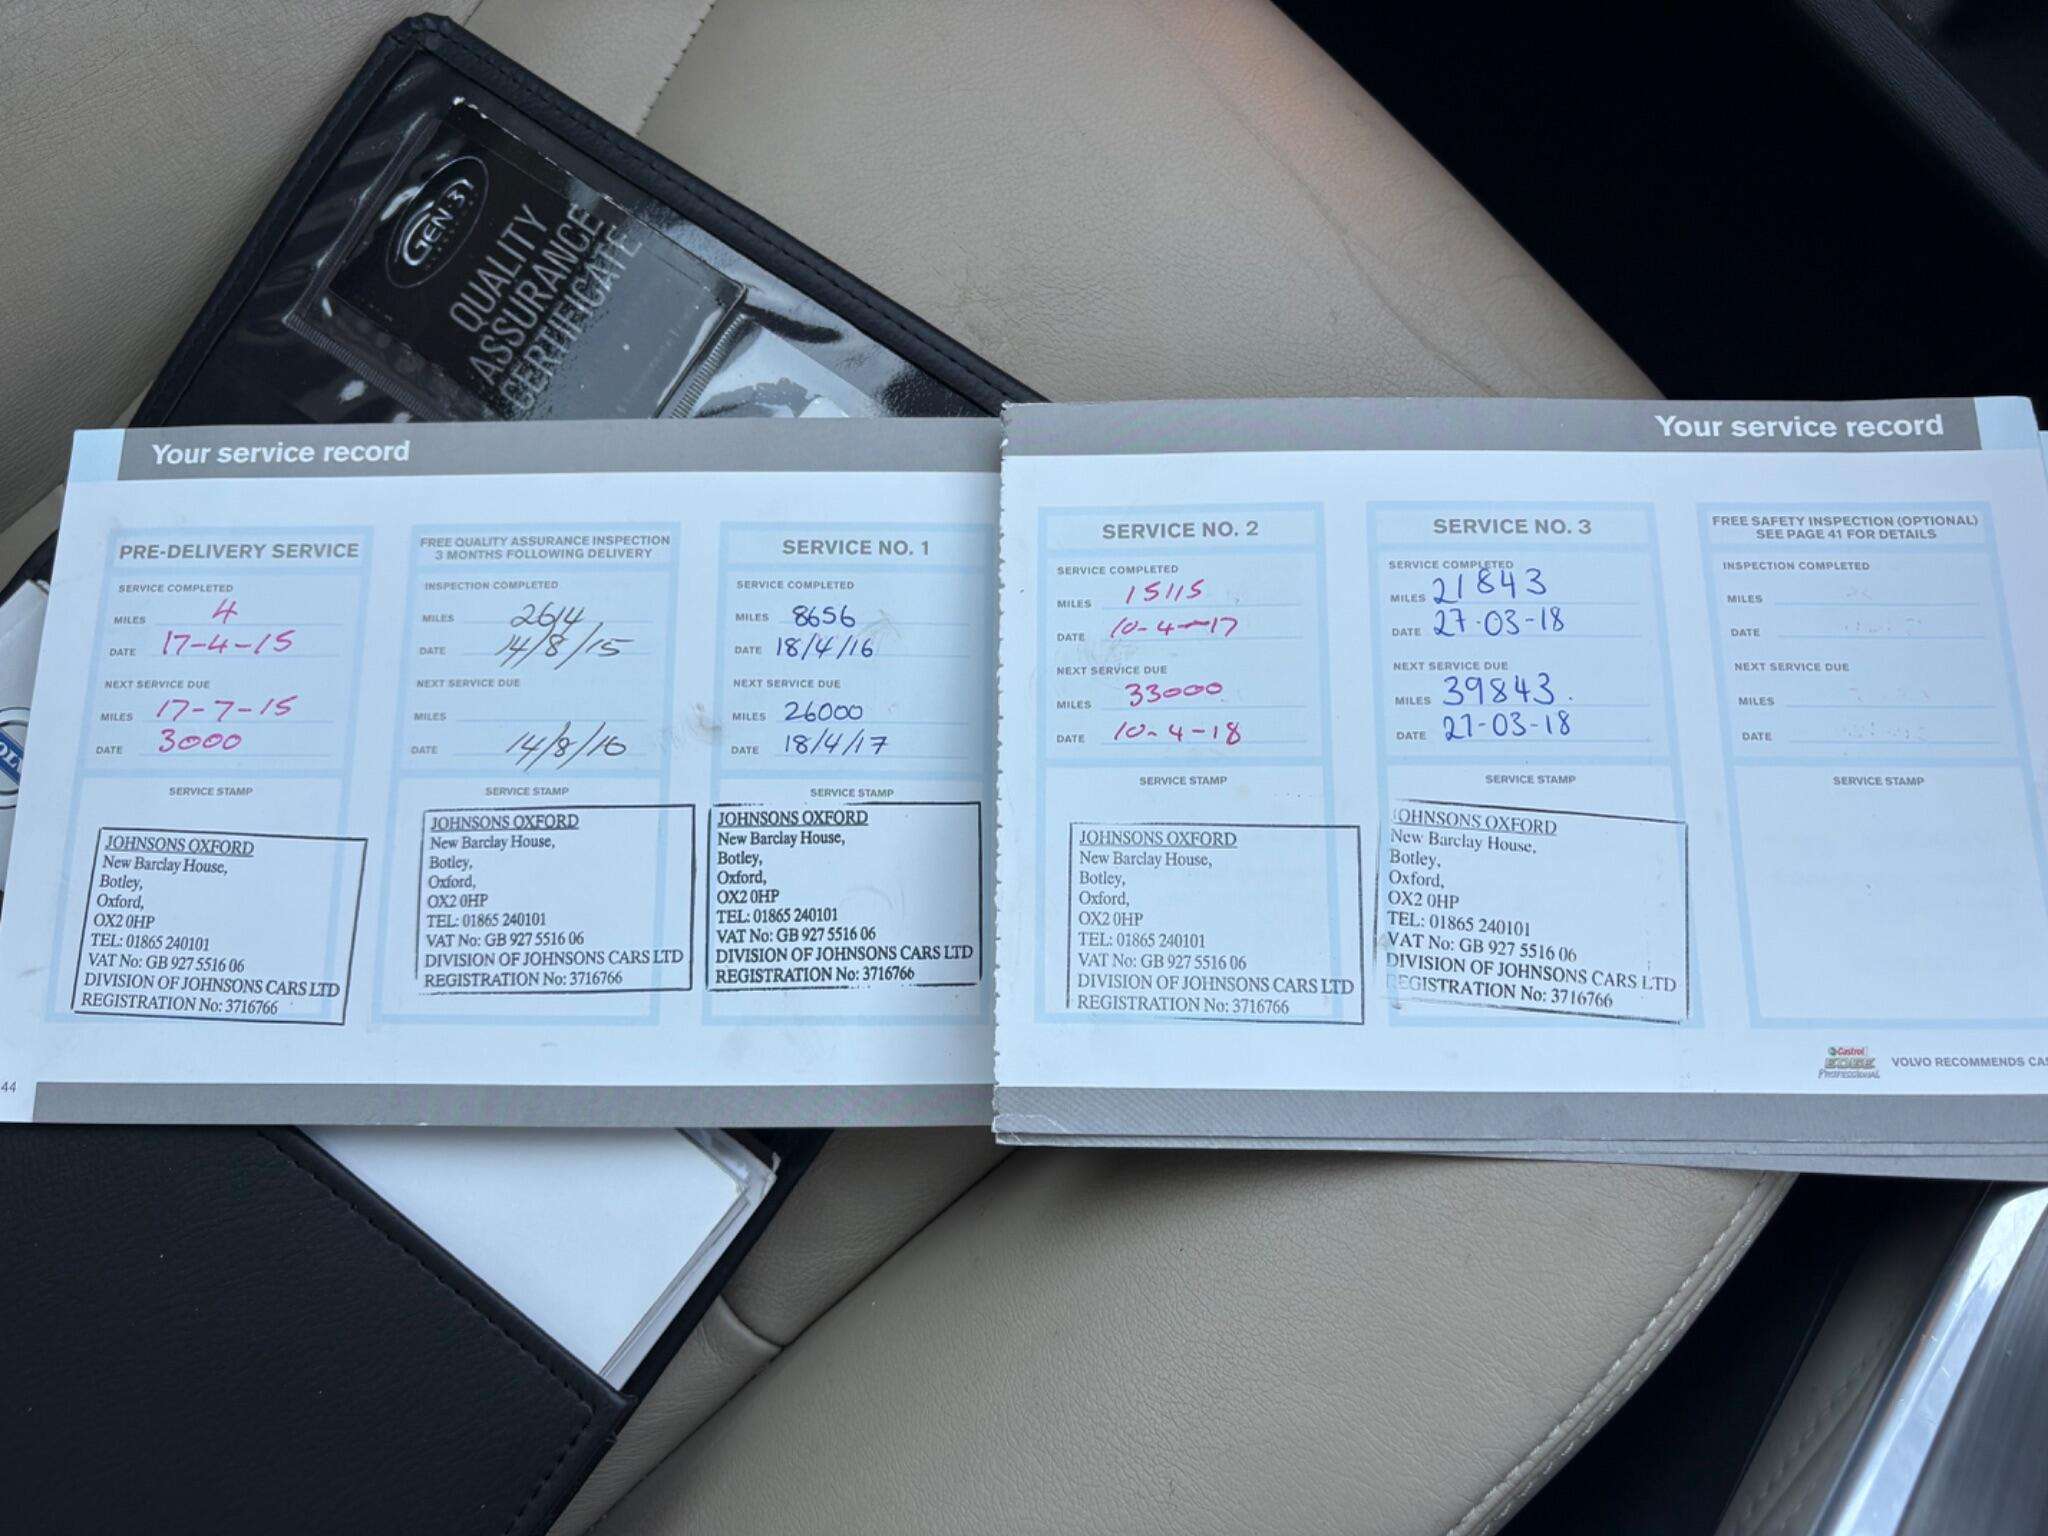 GEN-3
QUALITY
ASSURANCE
CERTIFICATE
Your service record
PRE-DELIVERY SERVICE
SERVICE COMPLETED
MILES 4
DATE 17-4-15
NEXT SERVICE DUE
MILES 17-7-15
DATE 3000
SERVICE STAMP
JOHNSONS OXFORD
New Barclay House,
Botley,
Oxford,
OX2 0HP
TEL: 01865 240101
VAT No: GB 927 5516 06
DIVISION OF JOHNSONS CARS LTD
REGISTRATION No: 3716766
FREE QUALITY ASSURANCE INSPECTION
3 MONTHS FOLLOWING DELIVERY
INSPECTION COMPLETED
MILES 2614
DATE 14/8/15
NEXT SERVICE DUE
MILES
DATE 14/8/16
SERVICE STAMP
JOHNSONS OXFORD
New Barclay House,
Botley,
Oxford,
OX2 0HP
TEL: 01865 240101
VAT No: GB 927 5516 06
DIVISION OF JOHNSONS CARS LTD
REGISTRATION No: 3716766
SERVICE NO. 1
SERVICE COMPLETED
MILES 8656
DATE 18/4/16
NEXT SERVICE DUE
MILES 26000
DATE 18/4/17
SERVICE STAMP
JOHNSONS OXFORD
New Barclay House,
Botley,
Oxford,
OX2 0HP
TEL: 01865 240101
VAT No: GB 927 5516 06
DIVISION OF JOHNSONS CARS LTD
REGISTRATION No: 3716766
44
Your service record
SERVICE NO. 2
SERVICE COMPLETED
MILES 15115
DATE 10-4-17
NEXT SERVICE DUE
MILES 33000
DATE 10-4-18
SERVICE STAMP
JOHNSONS OXFORD
New Barclay House,
Botley,
Oxford,
OX2 0HP
TEL: 01865 240101
VAT No: GB 927 5516 06
DIVISION OF JOHNSONS CARS LTD
REGISTRATION No: 3716766
SERVICE NO. 3
SERVICE COMPLETED
MILES 21843
DATE 27-03-18
NEXT SERVICE DUE
MILES 39843.
DATE 27-03-18
SERVICE STAMP
JOHNSONS OXFORD
New Barclay House,
Botley,
Oxford,
OX2 0HP
TEL: 01865 240101
VAT No: GB 927 5516 06
DIVISION OF JOHNSONS CARS LTD
REGISTRATION No: 3716766
FREE SAFETY INSPECTION (OPTIONAL)
SEE PAGE 41 FOR DETAILS
INSPECTION COMPLETED
MILES
DATE
NEXT SERVICE DUE
MILES
DATE
SERVICE STAMP
Castrol
EDGE
Professional
VOLVO RECOMMENDS CAS